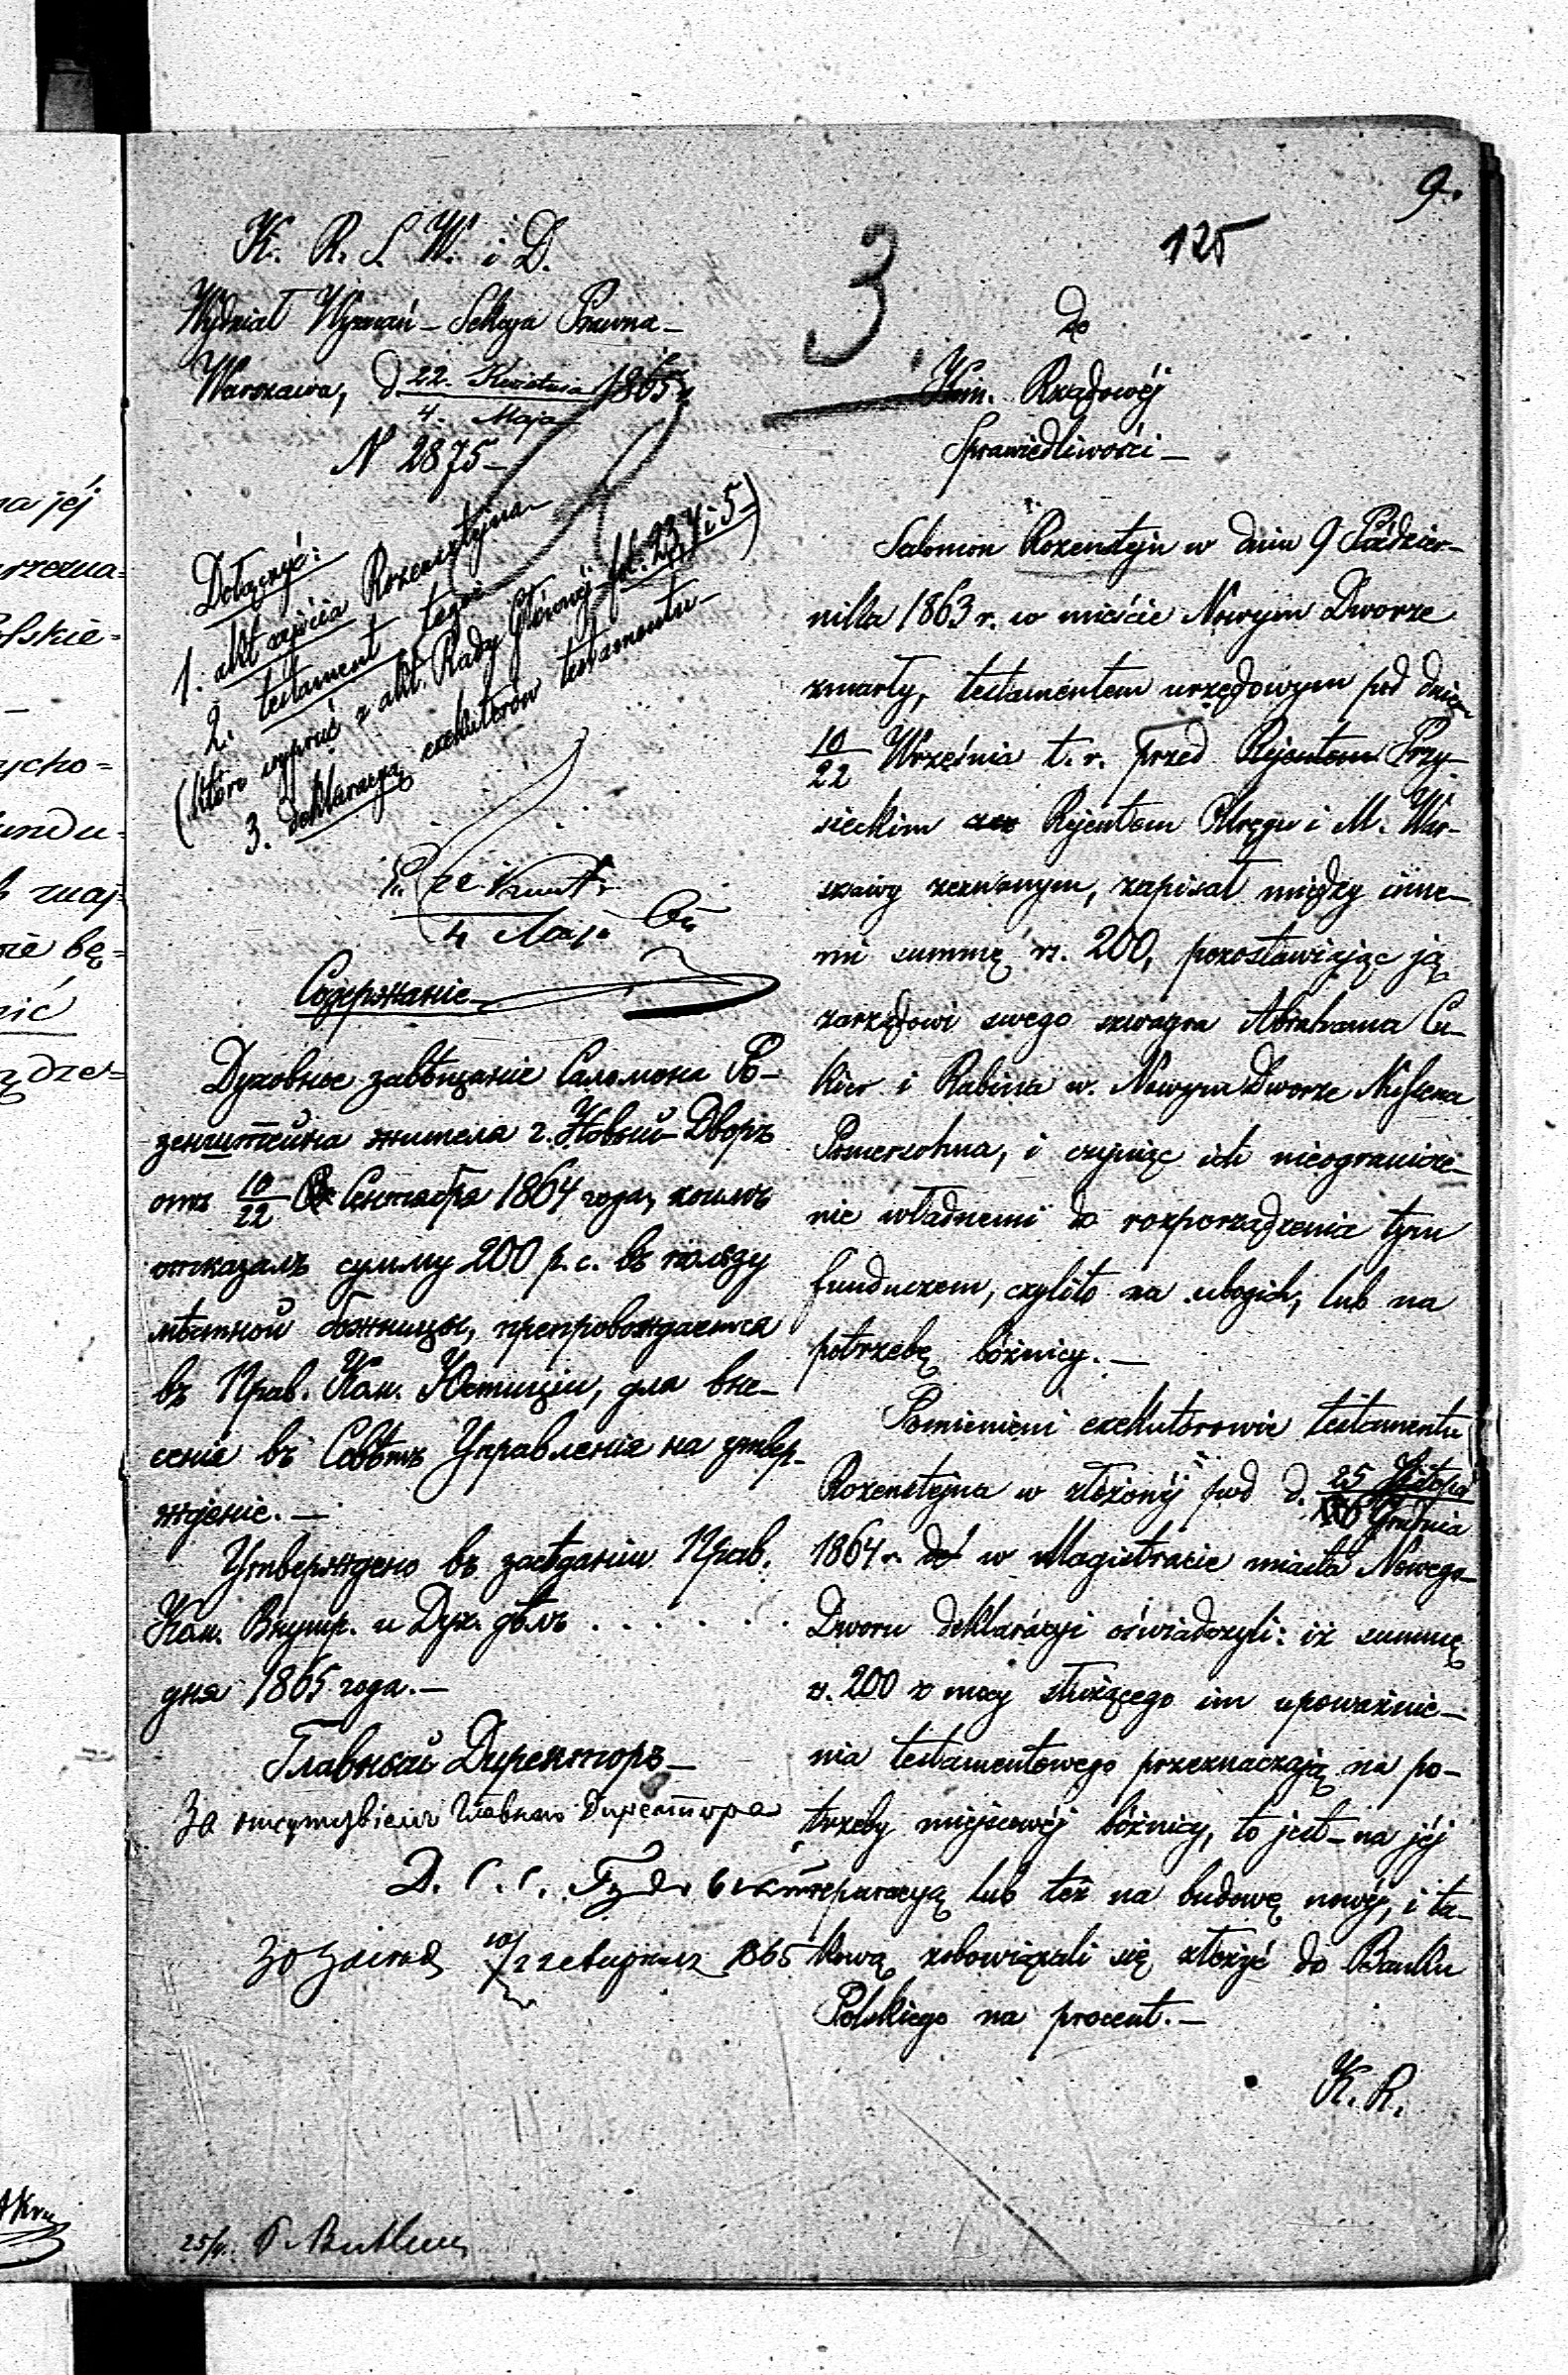 9.
125
3.
K. R. S. W. i D.
Wydział Wyznań – Sekcja Prawna –
Warszawa, d 22. Kwietnia / 4. Maja 1865 r.
N 2875 –
Dołączyć:
1. akt zejścia Rozensztejna
2. testament tegoż
(które wypruć z akt. Rady Głównej fol. 2 3, 4 i 5)
3. deklaracya exekutorów testamentu –
4 Maja
Содержаніе
Духовное завѣщаніе Саломона Ро-
зенштейна жителя г. Новый-Дворъ
отъ 10/22 Сентября 1864 года, коимъ
отказалъ сумму 200 р. с. въ пользу
мѣстной божницы, препровождается
въ Прав. Ком. Юстиціи, для вне-
сенія въ Совѣтъ Управленія на утвер-
жденіе. –
Утверждено въ засѣданіи Прав.
Ком. Внутр. и Дух. дѣлъ . . . . . .
дня 1865 года. –
Главный Директоръ –
За отсутствіемъ Главнаго Директора
Д. С. С.
1865
25/4.
do
Kom. Rządowéj
Sprawiedliwości –
Salomon Rozensztejn w dniu 9 Paździer-
nika 1863 r. w mieście Nowym Dworze
zmarły, testamentem urzędowym pod dniem
10/22 Września t. r. przed Rejentem Przy-
sieckim Rejentem Okręgu i M. War-
szawy zeznanym, zapisał między inne-
mi summę rs. 200, pozostawiając ją
zarządowi swego szwagra Abrahama Cu-
kier i Rabina w. Nowym Dworze
Pomerzohna, i czyniąc ich nieogranicze-
nie władnemi do rozporządzenia tym
funduszem, czylito na ubogich, lub na
potrzebę bóżnicy. –
Pomienieni exekutorowie testamentu
Rozensztejna w złożonéj pod d. 25 Listopa / Grudnia
1864 r. w Magistracie miasta Nowego-
Dworu deklaracyi oświadczyli: iż summę
rs. 200 z mocy służącego im upoważnie-
nia testamentowego przeznaczają na po-
trzeby miejscowéj bóżnicy, to jest – na jéj
reparacyą lub też na budowę nowéj, i ta-
kową zobowiązali się złożyć do Banku
Polskiego na procent. –
K. R.